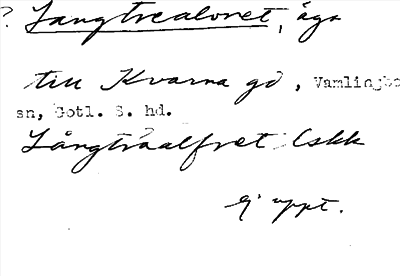 ? Langtrealvret, äga
till Kvarna gd, Vamlingbo
sn, Gotl. S. hd.
Långträalfret Cskk
Ej uppt.